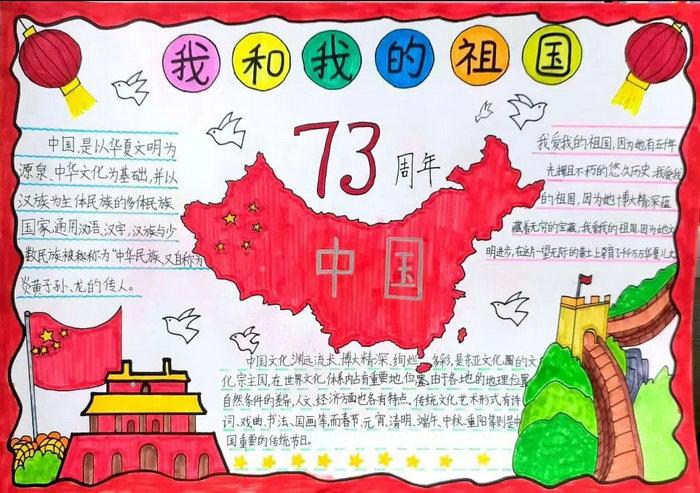 我和我的祖国
73周年
中国,是以华夏文明为
源泉、中华文化为基础,并以
汉族为主体民族的多体民族
国家,通用汉语、汉字,汉族与少
数民族被称为"中华民族、又自称为
炎黄子孙、龙的传人。
我爱我的祖国,因为她有五千年
光辉且不朽的悠久历史,我爱我
的祖国,因为她博大精深蕴
藏着无穷的宝藏,我爱我的祖国,因为她文
明进步,在这一望无际的黄土上孕育了千千万万华夏儿女
中国
中国文化渊远流长、博大精深、绚烂多彩,是东亚文化圈的文
化宗主国,在世界文化体系内占有重要地位,由于各地的地理位置
自然条件的差异,人文、经济方面也各有特点。传统文化艺术形式有诗
词、戏曲、书法、国画等,而春节、元宵、清明、端午、中秋、重阳等则是中
国重要的传统节日。